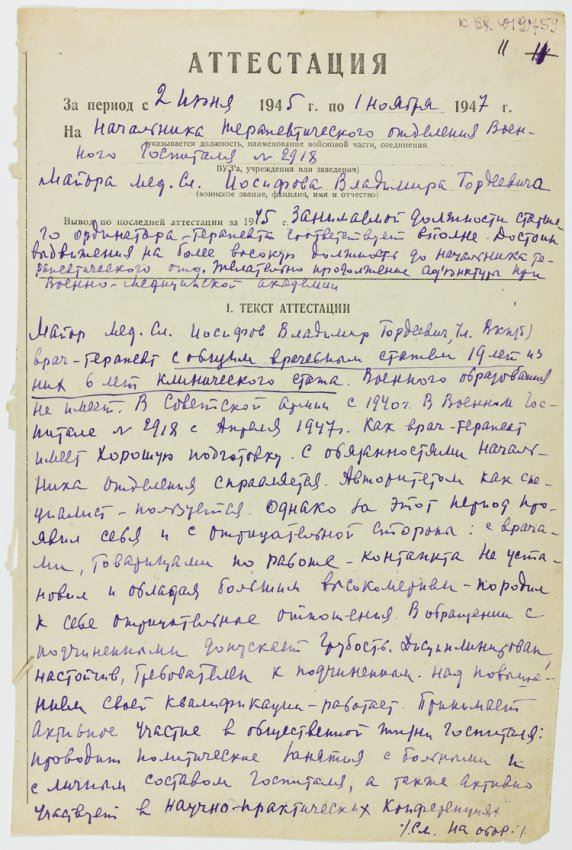 к вх. 019759
11
АТТЕСТАЦИЯ
За период с 2 июня 1945 г. по 1 ноября 1947 г.
На Начальника терапевтического отделения Воен-
(указывается должность, наименование войсковой части, соединения,
ного Госпиталя № 2918
ВУЗ'а, учреждения или заведения)
Майора мед. сл. Иосифова Владимира Гордеевича
(воинское звание, фамилия, имя и отчество)
Вывод по последней аттестации за 1945 г. Занимаемой должности старше-
го ординатора-терапевта соответствует вполне. Достоин
выдвижения на более высокую должность до начальника те-
рапевтического отд. Желательно продолжение адъюнктуры при
Военно-медицинской академии
I. ТЕКСТ АТТЕСТАЦИИ
Майор мед. сл. Иосифов Владимир Гордеевич, чл. ВКП(б)
врач-терапевт с общим врачебным стажем 19 лет из
них 6 лет клинического стажа. Военного образования
не имеет. В Советской армии с 1940 г. В Военном Гос-
питале № 2918 с Апреля 1947 г. Как врач-терапевт
имеет хорошую подготовку. С обязанностями началь-
ника отделения справляется. Авторитетом как спе-
циалист - пользуется. Однако за этот период про-
явил себя и с отрицательной стороны: с врача-
ми, товарищами по работе - контакта не уста-
новил и обладая большим высокомерием - породил
к себе отрицательное отношения. В обращении с
подчиненными допускает грубость. Дисциплинирован
настойчив, требователен к подчиненным. Над повыше-
нием своей квалификации - работает. Принимает
активное участие в общественной жизни госпиталя:
проводит политические занятия с больными и
с личным составом госпиталя, а также активно
участвует в научно-практических конференциях
/См. на обор./